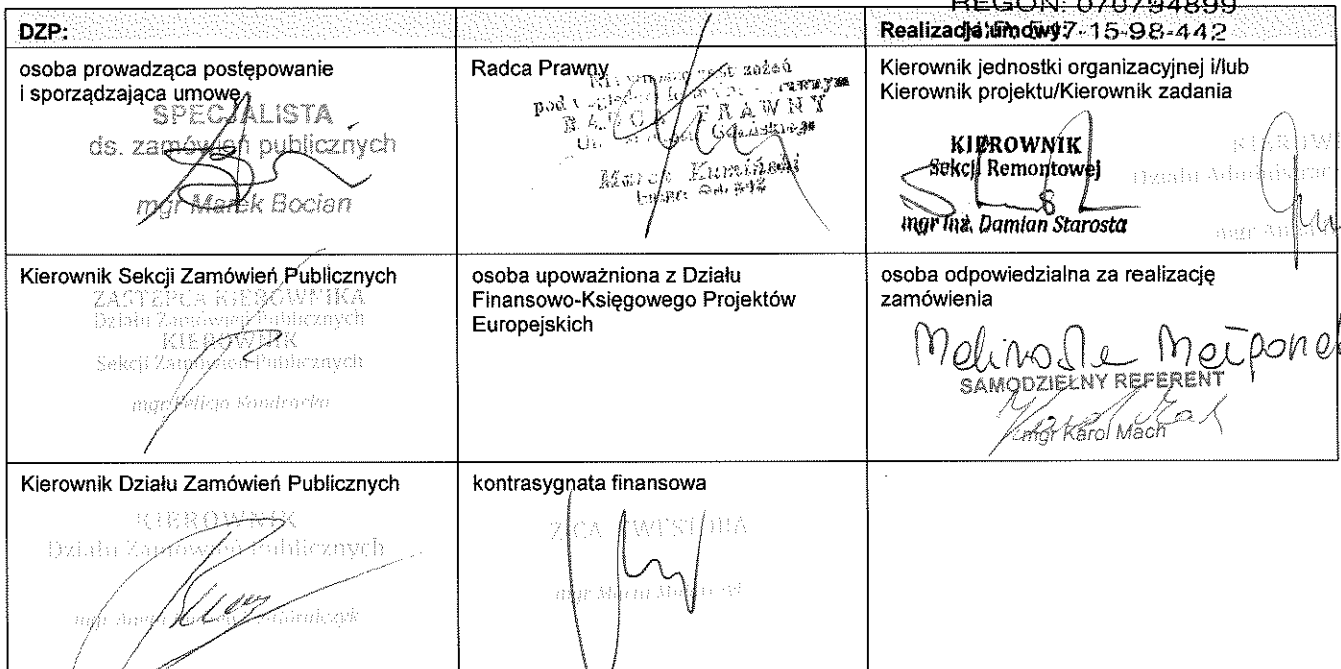 REGON: 070794899
DZP:
Realizacja umowy:
7-15-98-442
osoba prowadząca postępowanie
i sporządzająca umowę
SPECJALISTA
ds. zamówień publicznych
mgr Marek Bocian
Radca Prawny
pod
RADCA PRAWNY
Kierownik jednostki organizacyjnej i/lub
Kierownik projektu/Kierownik zadania
KIEROWNIK
Sekcji Remontowej
mgr inż. Damian Starosta
Działu Administrac
mgr
Kierownik Sekcji Zamówień Publicznych
ZASTĘPCA KIEROWNIKA
Działu Zamówień Publicznych
KIEROWNIK
Sekcji Zamówień Publicznych
mgr Felicja
osoba upoważniona z Działu
Finansowo-Księgowego Projektów
Europejskich
osoba odpowiedzialna za realizację
zamówienia
SAMODZIELNY REFERENT
mgr Karol Mach
Kierownik Działu Zamówień Publicznych
KIEROWNIK
Działu Zamówień Publicznych
mgr
kontrasygnata finansowa
Z-CA KWESTORA
mgr Maria